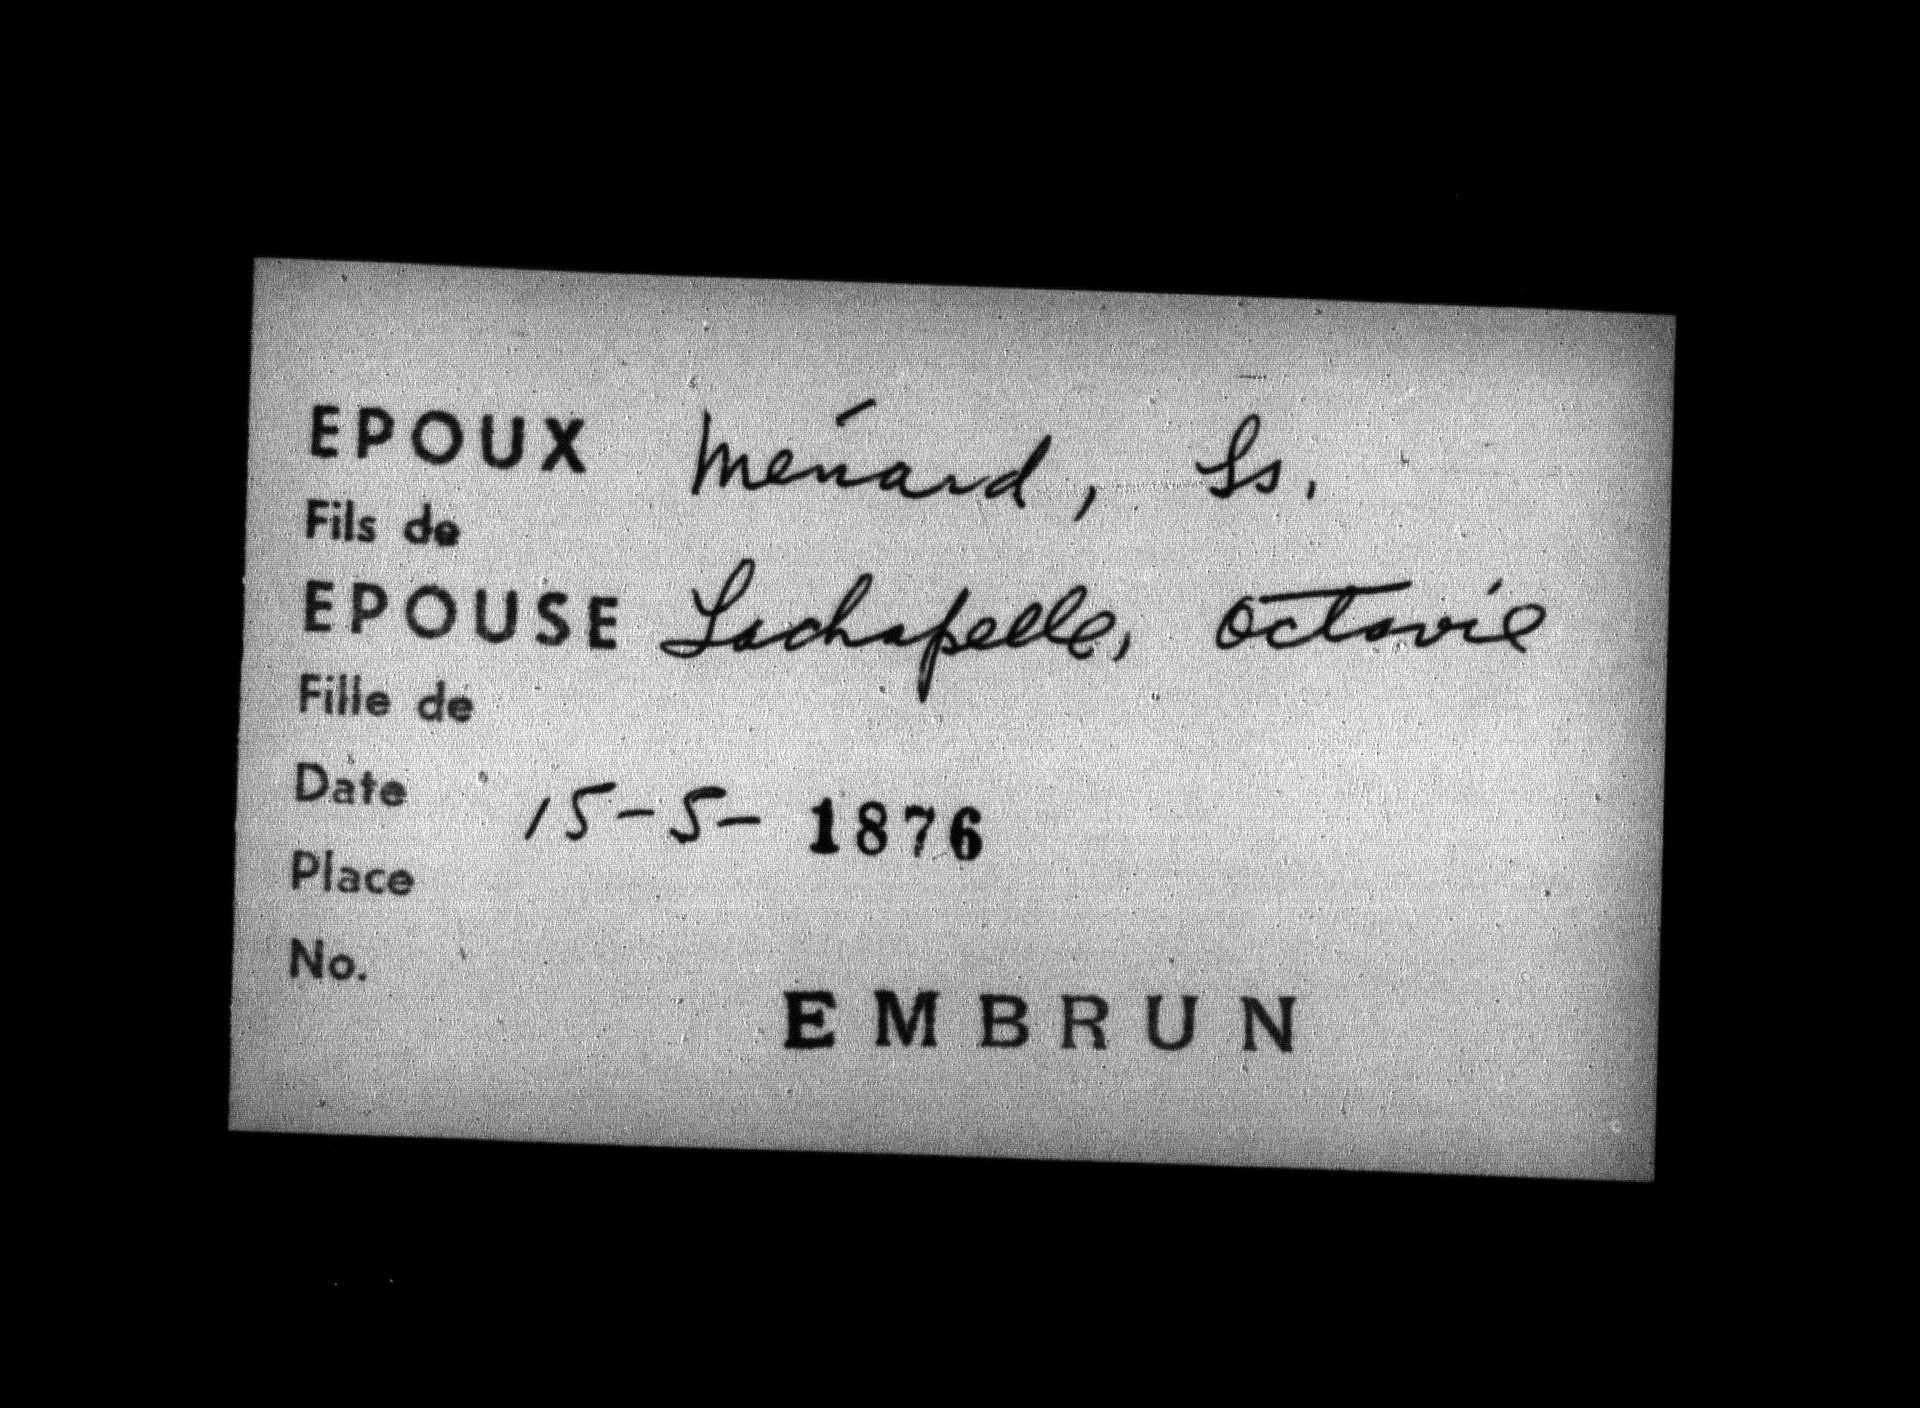 EPOUX Ménard, Ls.
Fils de
EPOUSE Lachapelle, Octavie
Fille de
Date 15-5-1876
Place
No.
EMBRUN